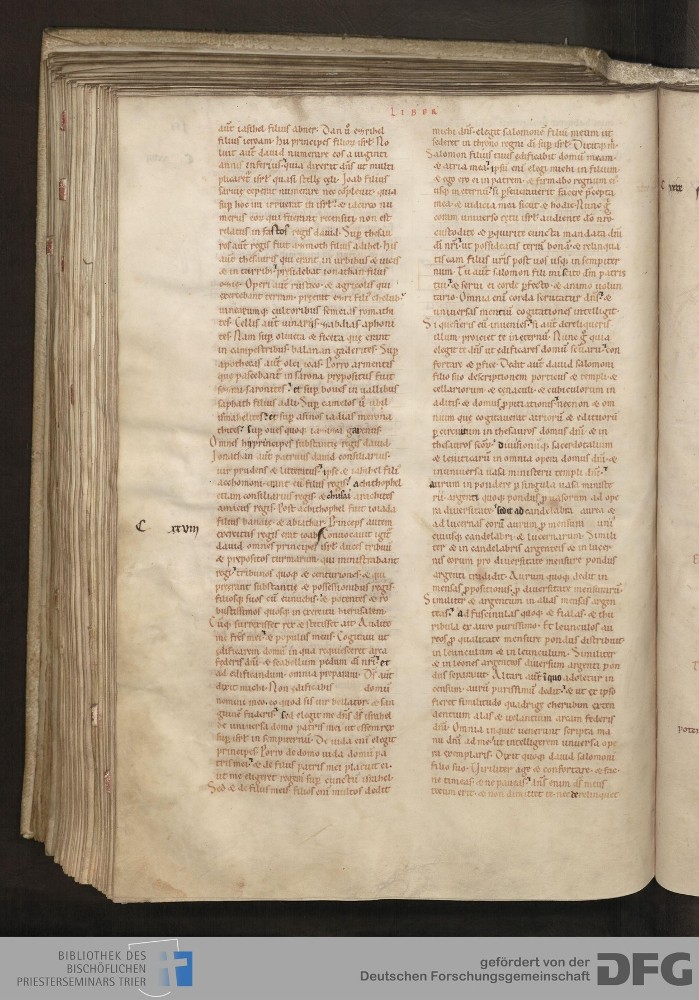 LIBER
aut iasihel filius abner. Dan û ezrihel
filius ieroam. hii principes filioꝝ isrł. No
luit aut dauid numerare eos a uiginti
annis inferius. quia dixerat dñs ut multi
plicaret isrł quasi stellas celi. Ioab filius
saruie ceperat numerare nec compleuit. quia
sup hoc ira irruerat in isrł. & iccirco nu
merus eoꝝ qui fuerant recensiti non est
relatus in fastos regis dauid. Sup thesau
ros aut regis fuit azmoth filius adihel. his
aut thesauris qui erant in urbibus & uicis
& in turribꝰ. presidebat ionathan filius
ozie. Operi aut rustico. & agricolis qui
exercebant terram. preerat ezri filiꝰ chelub.
uinearumqꝫ cultoribus semeias romathi
tes. Cellis aut uinariis. zabdias aphoni
tes. Nam sup oliueta & ficeta que erant
in campestribus balanan gaderites. Sup
apothecas aut olei ioas. Porro armentis
que pascebant in sarona prepositus fuit
saronites. et sup boues in uallibus
saphath filius adli. Sup camelos û ubil
ismahelites. et sup asinos iadias merona
thites. Sup oues quoqꝫ iaziz agarenus.
Omnes hii principes substantie regis dauid.
Ionathan aut patruus dauid consiliarius.
uir prudens & litteratus. ipse & iahihel filiꝰ
acchomoni. erant cû filiis regis. Achithophel
etiam consiliarius regis. & chusai arachites
amicus regis. Post achithophel fuit ioiada
filius banaie. & abiathar. Princeps autem
exercitus regis erat ioab. Conuocauit igit̃
C. XXVIII
dauid omnes principes isrł. duces tribuū
& prepositos turmarum. qui ministrabant
regi. tribunos quoqꝫ & centuriones. & qui
preerant substantie & possessionibus regis.
filiosqꝫ suos cū eunuchis. & potentes & ro
bustissimos quosqꝫ in exercitu hierusalem.
Cûqꝫ surrexisset rex & stetisset ait. Audite
me fres mei. & populus meus. Cogitaui ut
edificarem domū in qua requiesceret archa
federis dñi. & scabellum pedum dī nr̃i. et
ad edificandum. omnia preparaui. Ds̄ aut
dixit michi. Non edificabis domū
nomini meo. eo quod sis uir bellator. & san
guinē fuderis. Sed elegit me dñs ds̄ israhel
de uniuersa domo patris mei. ut essem rex
sup isrł in sempiternū. De iuda enī elegit
principes. Porro de domo iuda. domū pa
tris mei. & de filiis patris mei placuit ei.
ut me eligeret regem sup cunctū israhel.
Sed & de filiis meis. filios enī multos dedit
michi dñs. elegit salomonē filiū meum ut
sederet in throno regni dī sup isrł. Dixitqꝫ m̄.
Salomon filius tuus edificabit domū meam.
& atria mea. ipsū enī elegi michi in filium.
& ego ero ei in patrem. & firmabo regnum eiꝰ
usqꝫ in eternū. si pseuerauerit facere p̄cepta
mea. & iudicia mea sicut & hodie. Nunc g̃
coram uniuerso cetu isrł. audiente dō nr̃o.
custodite & pquirite cuncta mandata dñi
dī nr̃i. ut possideatis terrā bonā. & relinqua
tis eam filiis ur̃is post uos usqꝫ in sempiter
num. Tu aut salomon fili mi. scito dm̄ patris
tui. & serui ei corde pfecto. & animo uolun
tario. Omnia enī corda scrutatur dñs. &
uniuersas mentiū cogitationes intelligit.
Si quesieris eū inuenies. si aut dereliqueris
illum. proiciet te in eternū. Nunc g̃ quia
elegit te dñs ut edificares domū sc̄uarii. con
fortare & pfice. Dedit aut dauid salomoni
filio suo descriptionem porticus. & templi. &
cellariorum. & cenaculi. & cubiculorum in
aditis. & domus ppitiationis. necnon & om
nium que cogitauerat atrioꝝ. & exedrarū
p circuitum in thesauros domus dñi. & in
thesauros sc̄oꝝ. diuisionūqꝫ sacerdotalium
& leuiticarū in omnia opera domus dñi. &
in uniuersa uasa ministerii templi dñi.
aurum in pondere p singula uasa ministe
rii. argenti quoqꝫ pondus p uasorum ad ope
ra diuersitate. Sed et ad candelabra aurea. &
ad lucernas eorū aurum. p mensura uni
cuiusqꝫ candelabri. & lucernarum. Simili
ter & in candelabris argenteis. & in lucer
nis eorum pro diuersitate mensure pondus
argenti tradidit. Aurum quoqꝫ dedit in
mensas ppositionis. p diuersitate mensarum.
Similiter & argentum in alias mensas argen
teas. ad fuscinulas quoqꝫ & fialas. & thu
ribula ex auro purissimo. Et leunculos au
reos. p qualitate mensure pondus distribuit
in leunculum & in leunculum. Similiter
& in leones argenteos diuersum argenti pon
dus separauit. Altari aut in quo adoletur in
censum. aurū purissimū dedit. & ut ex ipso
fieret similitudo quadrige cherubim exten
dentium alas. & uelantium arcam federis
dñi. Omnia inquit uenerunt scripta ma
nu dñi ad me. ut intelligerem uniuersa ope
ra exemplaris. Dixit quoqꝫ dauid salomoni
filio suo. Uiriliter age & confortare. & fac.
ne timeas & ne paueas. Dñs enim ds̄ meus
tecum erit. & non dimittet te. nec derelinquet
C XXIX
BIBLIOTHEK DES
BISCHÖFLICHEN
PRIESTERSEMINARS TRIER
gefördert von der
Deutschen Forschungsgemeinschaft
DFG